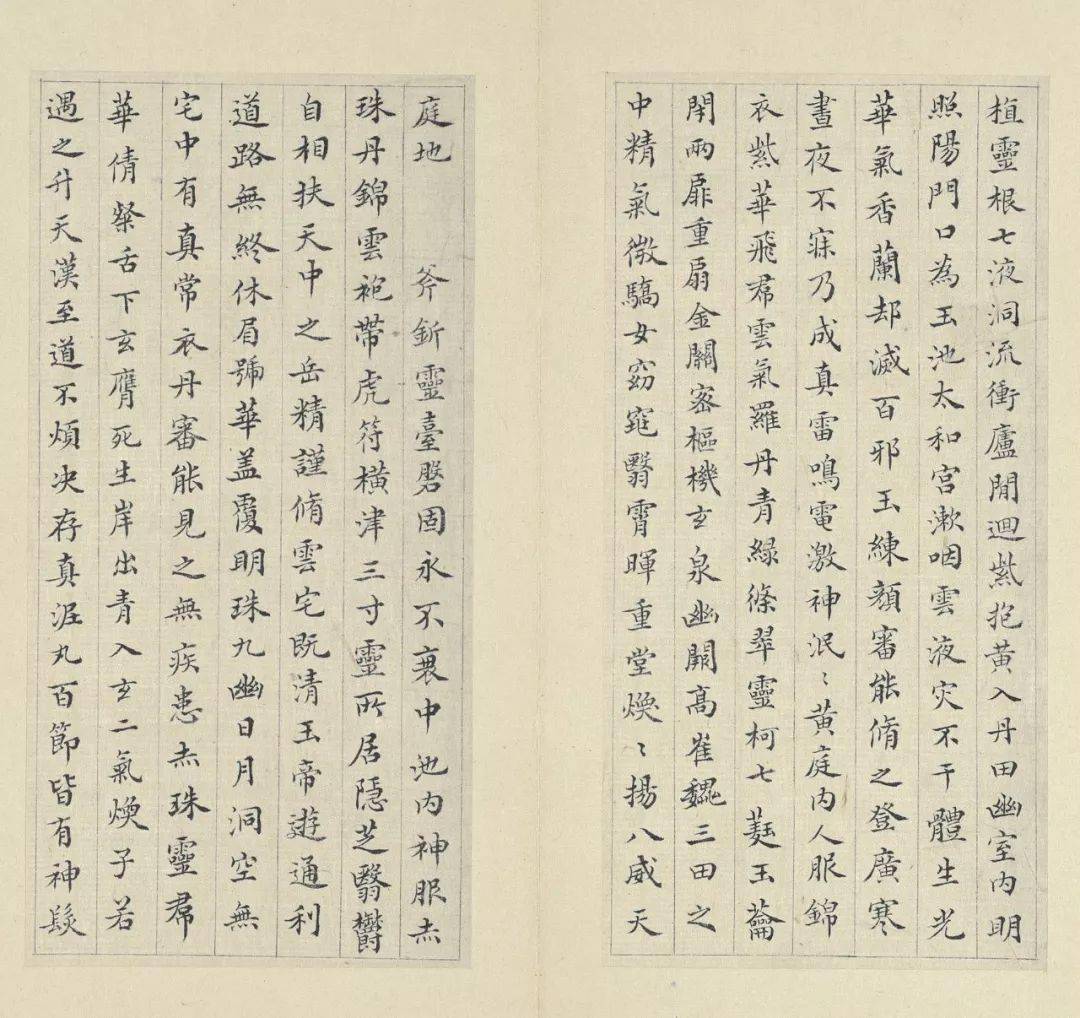 植靈根七液洞流衝廬間迴紫抱黃入丹田幽室內明
照陽門口為玉池太和宮漱咽雲液灾不干體生光
華氣香蘭却滅百邪玉練顏審能脩之登廣寒
晝夜不寐乃成真雷鳴電激神泯〻黃庭內人服錦
衣紫華飛帬雲氣羅丹青綠絛翠靈柯七蕤玉蘥
閇兩扉重扇金關密樞機玄泉幽闕高崔巍三田之
中精氣微驕女窈窕翳霄暉重堂煥〻揚八威天
庭地 斧釿靈臺磐固永不衰中池內神服赤
珠丹錦雲袍帶虎符橫津三寸靈所居隱芝翳鬱
自相扶天中之岳精謹脩雲宅既清玉帝遊通利
道路無終休眉號華盖覆明珠九幽日月洞空無
宅中有真常衣丹審能見之無疾患赤珠靈帬
華倩粲舌下玄膺死生岸出青入玄二氣煥子若
遇之升天漢至道不煩决存真泥丸百節皆有神髮